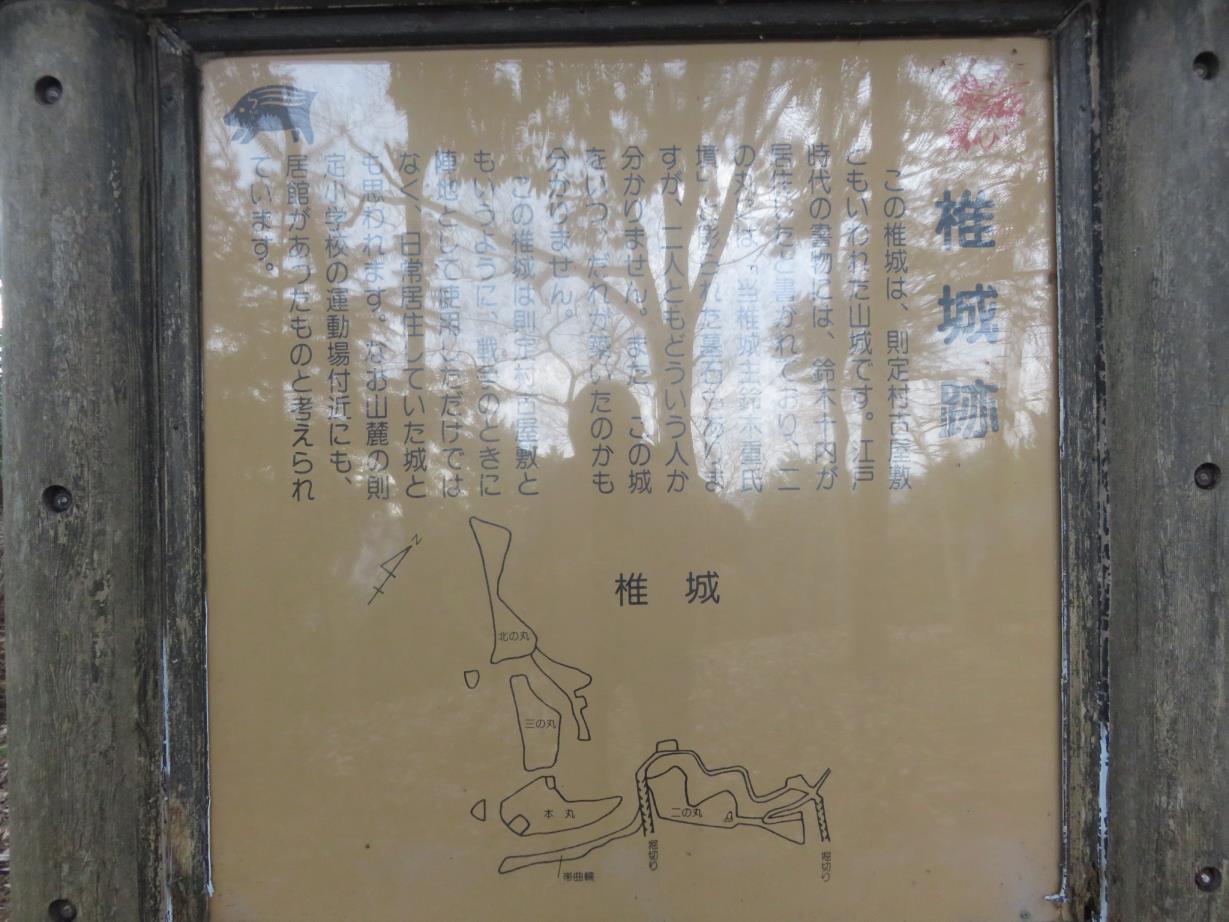 椎城跡
この椎城は、則定村古屋敷
ともいわれた山城です。江戸
時代の書物には、鈴木十内が
居住したと書かれており、二
の丸には「当椎城主鈴木重氏
墳」と彫られた墓石もありま
すが、二人ともどういう人か
分かりません。また、この城
をいつ、だれが築いたのかも
分かりません。
この椎城は則定村古屋敷と
もいうように、戦会のときに
陣地として使用しただけでは
なく、日常居住していた城と
も思われます。なお山麓の則
定小学校の運動場付近にも、
居館があったものと考えられ
ています。
椎城
N
北の丸
三の丸
本丸
二の丸
堀切り
堀切り
帯曲輪